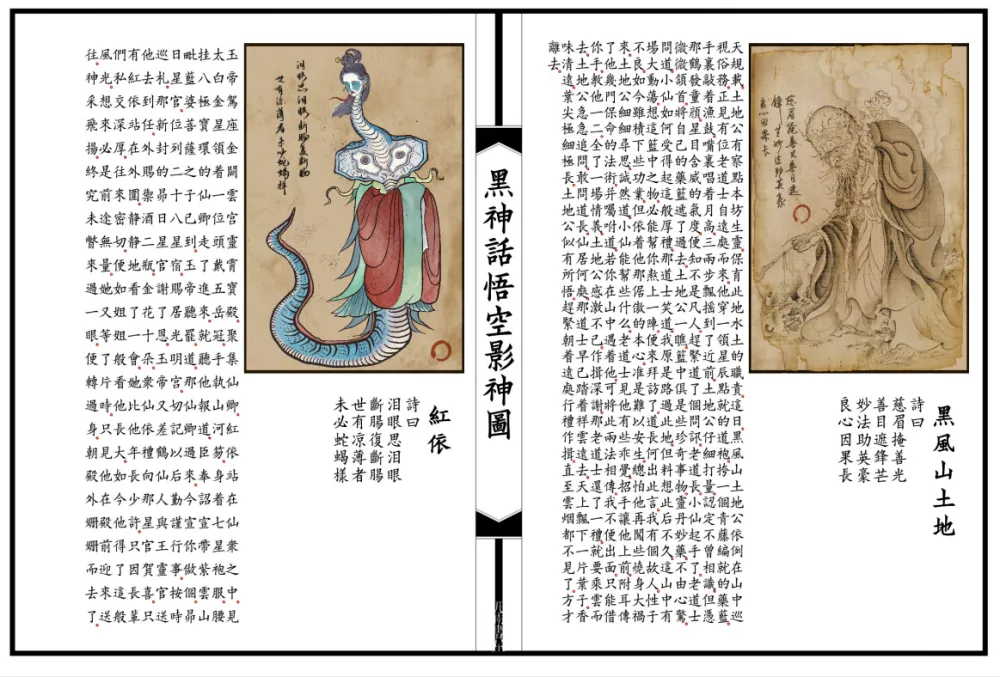 慈眉掩善光善目遮
鋒芒妙法助英豪
良心因果長
黑風山土地
詩曰
慈眉掩善光
善目遮鋒芒
妙法助英豪
良心因果長
天規載土地公有察點本坊生靈保育此地水土的職責這日黑風山土地公依例在山中巡
視俗務正見有位老道士自遠處而來他穿一領星辰點就的道袍挎一個青藤編就的藥籃
手裏敲着漁鼓嘴裏唱着月高三兩步飄搖到了近前土地公仔細打量認定不曾相識但憑
那鶴發童顔星目含威的氣度便知不是凡人趕緊道了個問訊老道長小仙起手了老道士
微微頷首將自己的藥籃遞了過去土地公一瞧籃中俱是些珍奇事物靈丹妙藥不由心驚
問道小仙如何受得起這般厚禮那道士笑道我原是路過此地但料想此后不久這山中有
場大動蕩想這籃中之物必能幫你熬上一陣便來拜訪了道長何出此言我有個故人性子
不良如今雖積下些功業但依着他那倨傲的本心准是難以安生總怕他再闖些燒身大禍
來土地公細細尋思誠然道小仙能幫些什么老道士見他有些乖覺招手讓他上前附耳傳
了他幾門保命的法術并囑咐道若你在山中遇着他可將此兩法相傳我不便出面只能借
你手教他一二全了一場情義土地公感激不已作揖深謝那老道士還了一禮就要乘雲而
去土地公急急追問敢問道長仙居何處那道士早已踏着祥雲遠去天上飄下一片葉子香
味清遠葉尖極細極長土地公似有所悟趕緊朝着遠處行禮作揖直至雲烟都不見了方才
離去
黑神話悟空影神圖
淚眼思淚眼斷腸復斷腸
世有涼薄者未必蛇蝎樣
紅依
詩曰
淚眼思淚眼
斷腸復斷腸
世有凉薄者
未必蛇蝎樣
玉帝駕座金闕雲宫靈霄寶殿聚集仙卿紅依站在仙衆之中見
太白金星領着一位頭戴五岳冠手執山河笏身着七星袍服腰
挂八極寶環的仙卿走了進來就聽他報道臣奉詔宣帶紫雲山
毗藍婆善薩之子已到玉帝聽罷道那仙卿過來今宣你做個昴
日星官位列二十八星宿賜居光明宫切記以后勤謹行事按時
巡札那新封的昴日星官謝了恩玉帝又差鶴仙人與王靈官送
他去到任外賜禦酒二瓶金花十朵衆仙依禮向那星官賀喜只
有紅依站在外圍静静地看了一會她比他年長少許只因長輩
們私交深厚往來密切便如姐姐般看他長大如今他得了這般
風光想來必是前途無量她又等了片時只見他在殿前迎來送
往神采飛揚終究未瞥來過一眼便轉過身朝殿外姍姍而去了